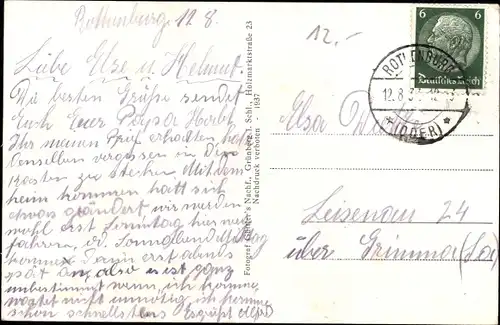 Rottenburg 12.8.
12.-
Liebe Else u. Helmut
Die besten Grüße sendet
Euch Euer Papa
Ihr meinen Brief erhalten
denselben vergessen in den
Kasten zu stecken. Mit dem
heim kommen hatt sich
etwas geändert wir werden
wohl erst Sonntag hier weg
fahren, Sonnabend
kommen Dann erst abends
spät an, also es ist ganz
unbestimmt wenn ich komme,
wartet nicht unnötig, ich komme
schon schnellstens Es grüßt
Fotograf Nachf., Grünberg i. Schl., Holzmarktstraße 23
Nachdruck verboten - 1937
6 6
Deutsches Reich
ROTHENBURG
12.8.
(ODER)
Elsa
Leisenau 24
über Grimma (Sa)